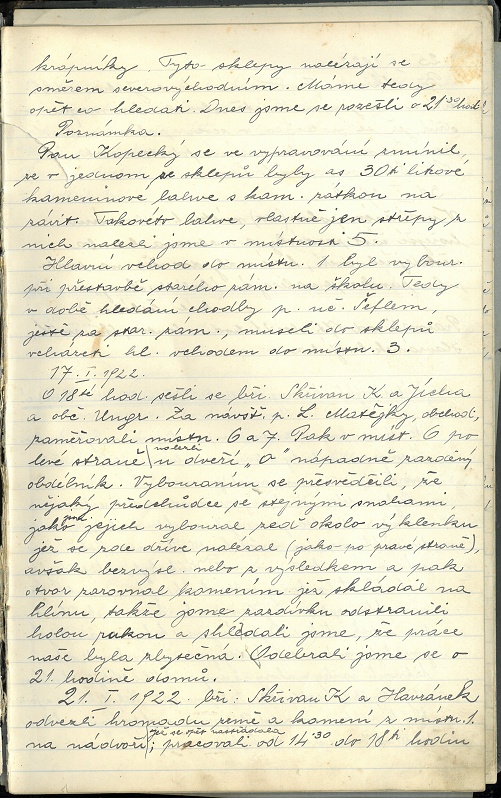 krápníky. Tyto sklepy nalézají se
směrem severovýchodním. Máme tedy
opět co hledati. Dnes jsme se rozešli o 21³⁰ hod.
Poznámka.
Pan Kopecký se ve vypravování zmínil,
že v jednom ze sklepů byly as 30ti litrové
kameninové lahve s kam. zátkou na
závit. Takovéto lahve, vlastně jen střepy, z
nich nalezli jsme v místnosti 5.
Hlavní vchod do místn. 1 byl vybour.
při přestavbě starého zám. na školu. Tedy
v době hledání chodby p. uč. Šeflem,
ještě za star. zam., museli do sklepů
vcházeti hl. vchodem do místn. 3.
17. I. 1922.
O 18té hod. sešli se bři. Skřivan K. a Jícha
a obč. Ungr. Za návšt. p. L. Matějky, obchod,
zaměřovali místn. 6 a 7. Pak v míst. 6 po
levé straně nalezli u dveří „O" nápadně zazděný
obdélník. Vybouraním se přesvědčili, že
nějaký předchůdce se stejnými snahami
jako jejich vyboural zeď okolo výklenku
jež se zde dříve nalézal (jako po pravé straně),
avšak bezvýsl. nebo z výsledkem a pak
otvor zarovnal kamením jež skládal na
hlínu, takže jsme zazdívku odstranili
holou rukou a shlédali jsme, že práce
naše byla zbytečná. Odebrali jsme se o
21. hodině domů.
21. I. 1922. bři: Skřivan K a Havránek
odvezli hromadu země a kamení z místn. 1.
na nádvoří, jež se opět nastřádala; pracovali od 14³⁰ do 18ti hodin